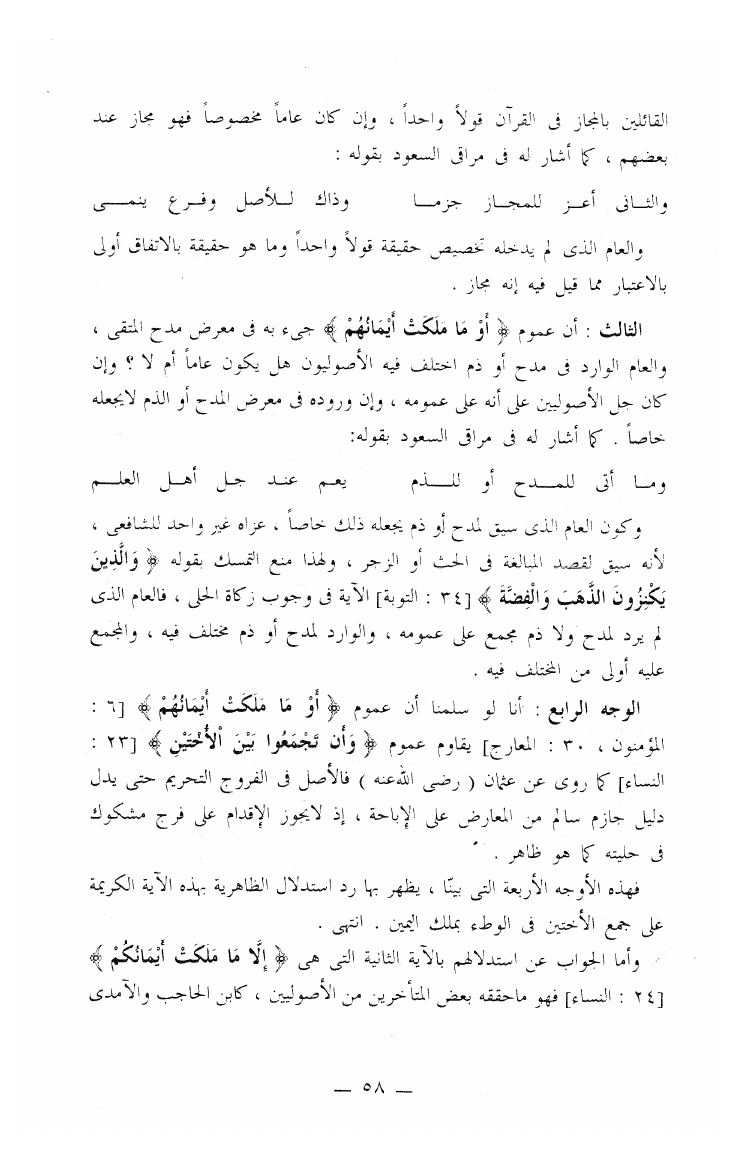 القائلين بالمجاز فى القرآن قولاً واحداً ، وإن كان عاماً مخصوصاً فهو مجاز عند
بعضهم ، كما أشار له فى مراقى السعود بقوله :
والثـانى أعـز للمجـاز جزمـا وذاك لـلأصل وفـرع ينمـى
والعام الذى لم يدخله تخصيص حقيقة قولاً واحداً وما هو حقيقة بالاتفاق أولى
بالاعتبار مما قيل فيه إنه مجاز .
الثالث : أن عموم ﴿ أَوْ مَا مَلَكَتْ أَيْمَانُهُمْ ﴾ جىء به فى معرض مدح المتقى ،
والعام الوارد فى مدح أو ذم اختلف فيه الأصوليون هل يكون عاماً أم لا ؟ وإن
كان جل الأصوليين على أنه على عمومه ، وإن وروده فى معرض المدح أو الذم لايجعله
خاصاً . كما أشار له فى مراقى السعود بقوله:
ومـا أتى للمـدح أو للـذم يعـم عنـد جـل أهـل العلـم
وكون العام الذى سيق لمدح أو ذم يجعله ذلك خاصاً ، عزاه غير واحد للشافعى ،
لأنه سيق لقصد المبالغة فى الحث أو الزجر ، ولهذا منع التمسك بقوله ﴿ وَالَّذِينَ
يَكْنِزُونَ الذَّهَبَ وَالْفِضَّةَ ﴾ [٣٤ : التوبة] الآية فى وجوب زكاة الحلى ، فالعام الذى
لم يرد لمدح ولا ذم مجمع على عمومه ، والوارد لمدح أو ذم مختلف فيه ، والمجمع
عليه أولى من المختلف فيه .
الوجه الرابع : أنا لو سلمنا أن عموم ﴿ أَوْ مَا مَلَكَتْ أَيْمَانُهُمْ ﴾ [٦ :
المؤمنون ، ٣٠ : المعارج] يقاوم عموم ﴿ وَأَن تَجْمَعُوا بَيْنَ الْأُخْتَيْنِ ﴾ [٢٣ :
النساء] كما روى عن عثمان ( رضى الله عنه ) فالأصل فى الفروج التحريم حتى يدل
دليل جازم سالم من المعارض على الإباحة ، إذ لايجوز الإقدام على فرج مشكوك
فى حليته كما هو ظاهر .
فهذه الأوجه الأربعة التى بينّا ، يظهر بها رد استدلال الظاهرية بهذه الآية الكريمة
على جمع الأختين فى الوطء بملك اليمين . انتهى .
وأما الجواب عن استدلالهم بالآية الثانية التى هى ﴿ إِلَّا مَا مَلَكَتْ أَيْمَانُكُمْ ﴾
[٢٤ : النساء] فهو ماحققه بعض المتأخرين من الأصوليين ، كابن الحاجب والآمدى
— ٥٨ —